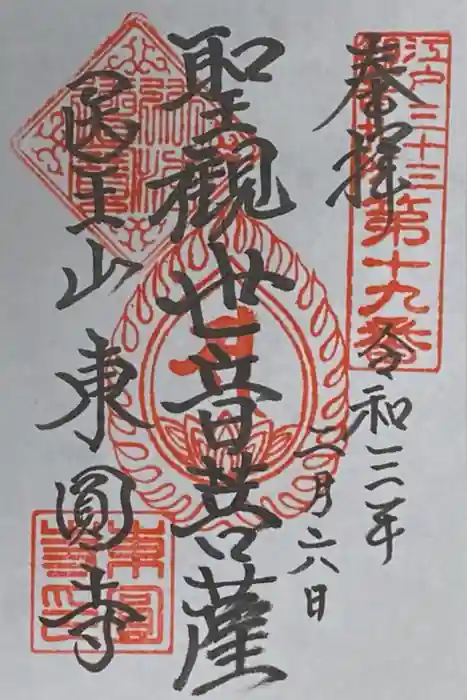 奉拝
江戸三十三
第十九番
令和三年
二月六日
聖觀世音菩薩
醫王山東圓寺